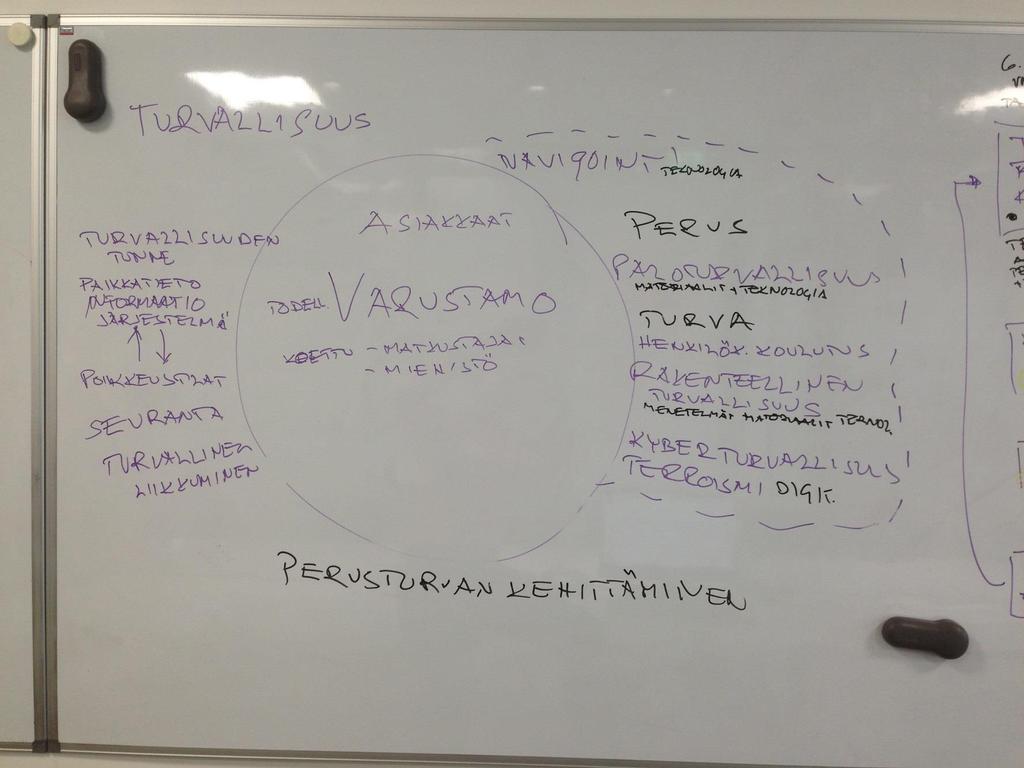 TURVALLISUUS
NAVIGOINTI TEKNOLOGIA
ASIAKKAAT
PERUS
TURVALLISUUDEN
TUNNE
PAIKKATIETO
INFORMAATIO
JÄRJESTELMÄ
POIKKEUSTILAT
SEURANTA
TURVALLINEN
LIIKKUMINEN
TODELL. VARUSTAMO
KOETTU - MATKUSTAJAT
- MIEHISTÖ
PALOTURVALLISUUS
MATERIAALIT + TEKNOLOGIA
TURVA
HENKILÖK. KOULUTUS
RAKENTEELLINEN
TURVALLISUUS
MENETELMÄT MATERIAALIT TEKNOL
KYBERTURVALLISUUS
TERRORISMI DIGIT.
PERUSTURVAN KEHITTÄMINEN
6.